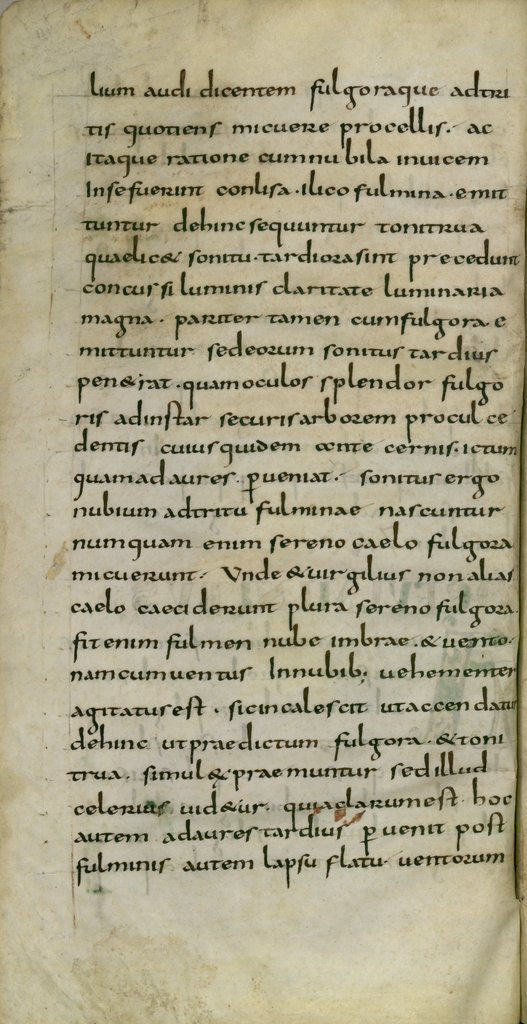 lium audi dicentem fulgoraque adtri
tis quotiens micuere procellis. ac
itaque ratione cum nubila invicem
In se fuerint conlisa. ilico fulmina. emit
tuntur dehinc sequuntur tonitrua
quae lic& sonitu. tardiora sint precedunt
concursi luminis claritate luminaria
magna. pariter tamen cum fulgora. e
mittuntur sed eorum sonitus tardius
pen&rat. quam oculos splendor fulgo
ris ad instar securis arborem procul ce
dentis cuius quidem ante cernis. ictum
quam ad aures. ꝑveniat. sonitus ergo
nubium adtritu fulminae nascuntur
numquam enim sereno caelo fulgora
micuerunt. Unde & uirgilius non alias
caelo caeciderunt plura sereno fulgora.
fit enim fulmen nube imbrae. & uento.
nam cum uentus In nubib; uehementer
agitatus est. sic incalescit ut accendatur
dehinc ut praedictum fulgora. & toni
trua. simul & praemuntur sed illud
celerius uid&ur. quia clarum est hoc
autem ad aures tardius ꝑvenit post
fulminis autem lapsu flatu uentorum